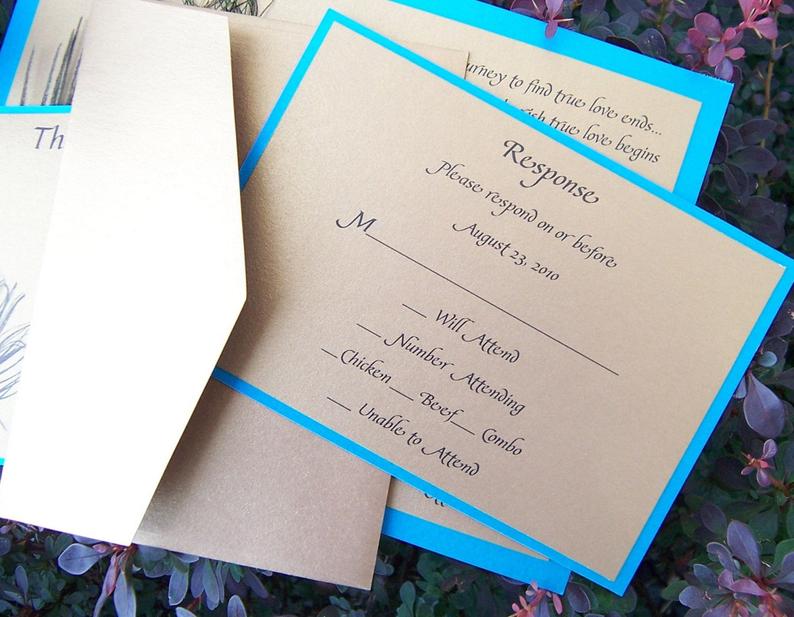 urney to find true love ends...
ish true love begins
Th
Response
Please respond on or before
August 23, 2010
M
__ Will Attend
__ Number Attending
__ Chicken __ Beef __ Combo
__ Unable to Attend